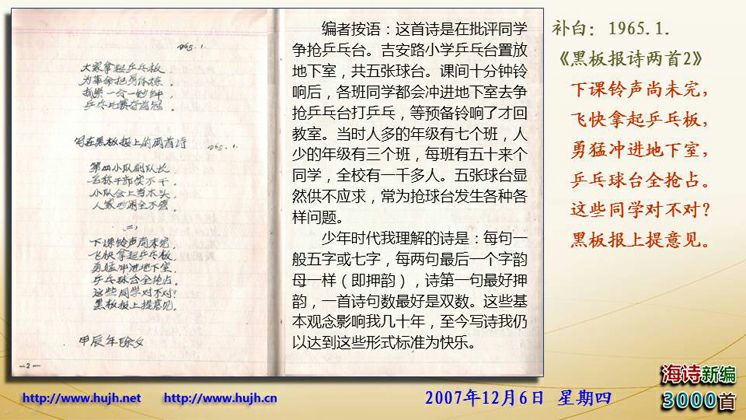 1965.1.
大家拿起乒乓板
写在黑板报上的两首诗 1965.1.
第四小队副队长
小队会上当木头
(二)
下课铃声尚未完,
飞快拿起乒乓板,
勇猛冲进地下室,
乒乓球台全抢占。
这些同学对不对?
黑板报上提意见。
甲辰年除夕
—2—
编者按语:这首诗是在批评同学
争抢乒乓台。吉安路小学乒乓台置放
地下室,共五张球台。课间十分钟铃
响后,各班同学都会冲进地下室去争
抢乒乓台打乒乓,等预备铃响了才回
教室。当时人多的年级有七个班,人
少的年级有三个班,每班有五十来个
同学,全校有一千多人。五张球台显
然供不应求,常为抢球台发生各种各
样问题。
少年时代我理解的诗是:每句一
般五字或七字,每两句最后一个字韵
母一样(即押韵),诗第一句最好押
韵,一首诗句数最好是双数。这些基
本观念影响我几十年,至今写诗我仍
以达到这些形式标准为快乐。
补白:1965.1.
《黑板报诗两首2》
下课铃声尚未完,
飞快拿起乒乓板,
勇猛冲进地下室,
乒乓球台全抢占。
这些同学对不对?
黑板报上提意见。
http://www.hujh.net http://www.hujh.cn
2007年12月6日 星期四
海诗新编
3000首